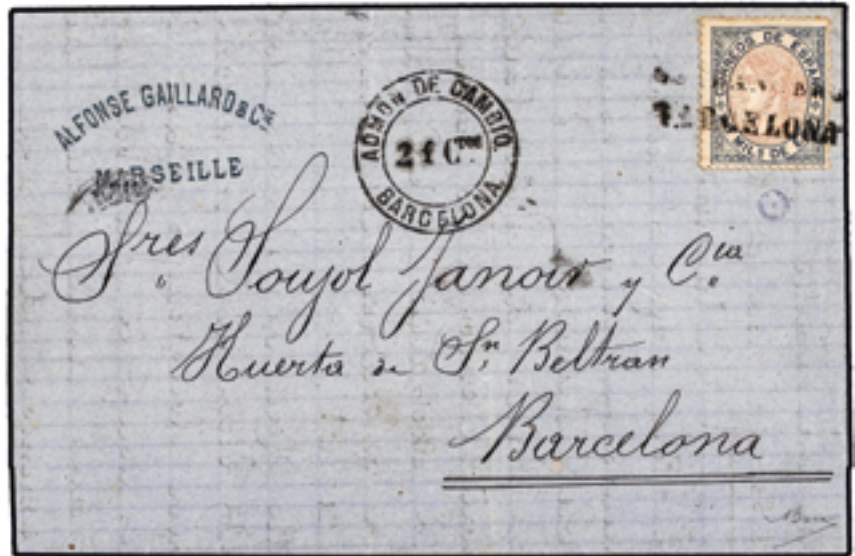 ALFONSE GAILLARD & Cie
MARSEILLE
ADMON DE CAMBIO
21 Ctos
BARCELONA
CORREOS DE ESPAÑA
MILS DE
BARCELONA
Sres Soujol Janoir y Cia
Huerta de Sn Beltran
Barcelona